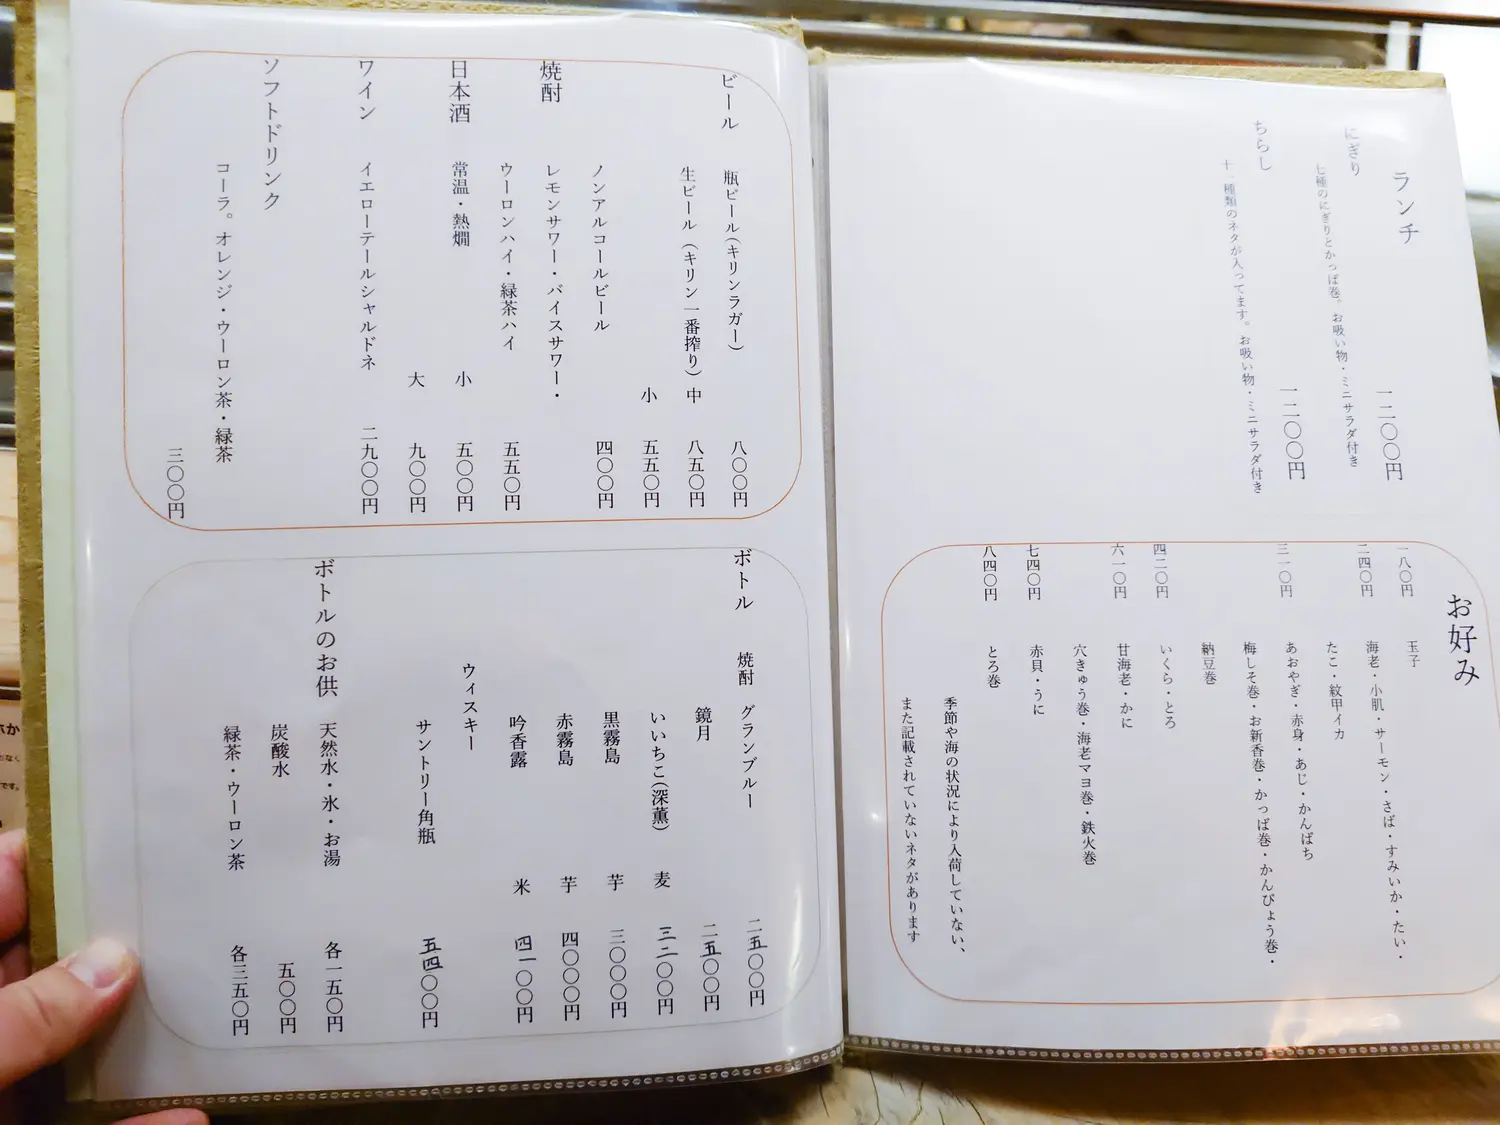 ランチ
にぎり
七種のにぎりとかっぱ巻。お吸い物・ミニサラダ付き
一二〇〇円
ちらし
十一種類のネタが入ってます。お吸い物・ミニサラダ付き
一二〇〇円
お好み
一八〇円 玉子
二四〇円 海老・小肌・サーモン・さば・すみいか・たい・
たこ・紋甲イカ
三一〇円 あおやぎ・赤身・あじ・かんぱち
梅しそ巻・お新香巻・かっぱ巻・かんぴょう巻・
納豆巻
四二〇円 いくら・とろ
六一〇円 甘海老・かに
穴きゅう巻・海老マヨ巻・鉄火巻
七四〇円 赤貝・うに
八四〇円 とろ巻
季節や海の状況により入荷していない、
また記載されていないネタがあります
ビール 瓶ビール(キリンラガー) 八〇〇円
生ビール (キリン一番搾り) 中 八五〇円
小 五五〇円
ノンアルコールビール 四〇〇円
焼酎 レモンサワー・バイスサワー・
ウーロンハイ・緑茶ハイ 五五〇円
日本酒 常温・熱燗 小 五〇〇円
大 九〇〇円
ワイン イエローテールシャルドネ 二九〇〇円
ソフトドリンク
コーラ。オレンジ・ウーロン茶・緑茶
三〇〇円
ボトル 焼酎 グランブルー 二五〇〇円
鏡月 二五〇〇円
いいちこ(深薫) 麦 三二〇〇円
黒霧島 芋 三〇〇〇円
赤霧島 芋 四〇〇〇円
吟香露 米 四一〇〇円
ウィスキー
サントリー角瓶 五四〇〇円
ボトルのお供 天然水・氷・お湯 各一五〇円
炭酸水 五〇〇円
緑茶・ウーロン茶 各三五〇円